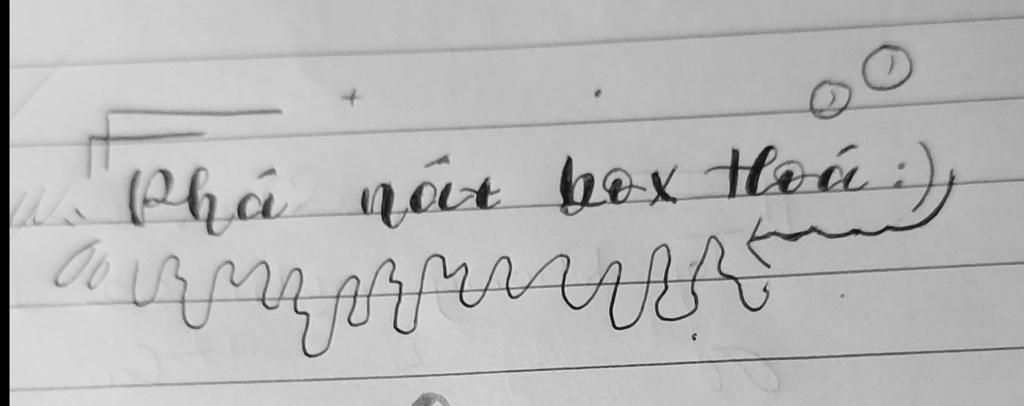 Phá nát box Hoá :)